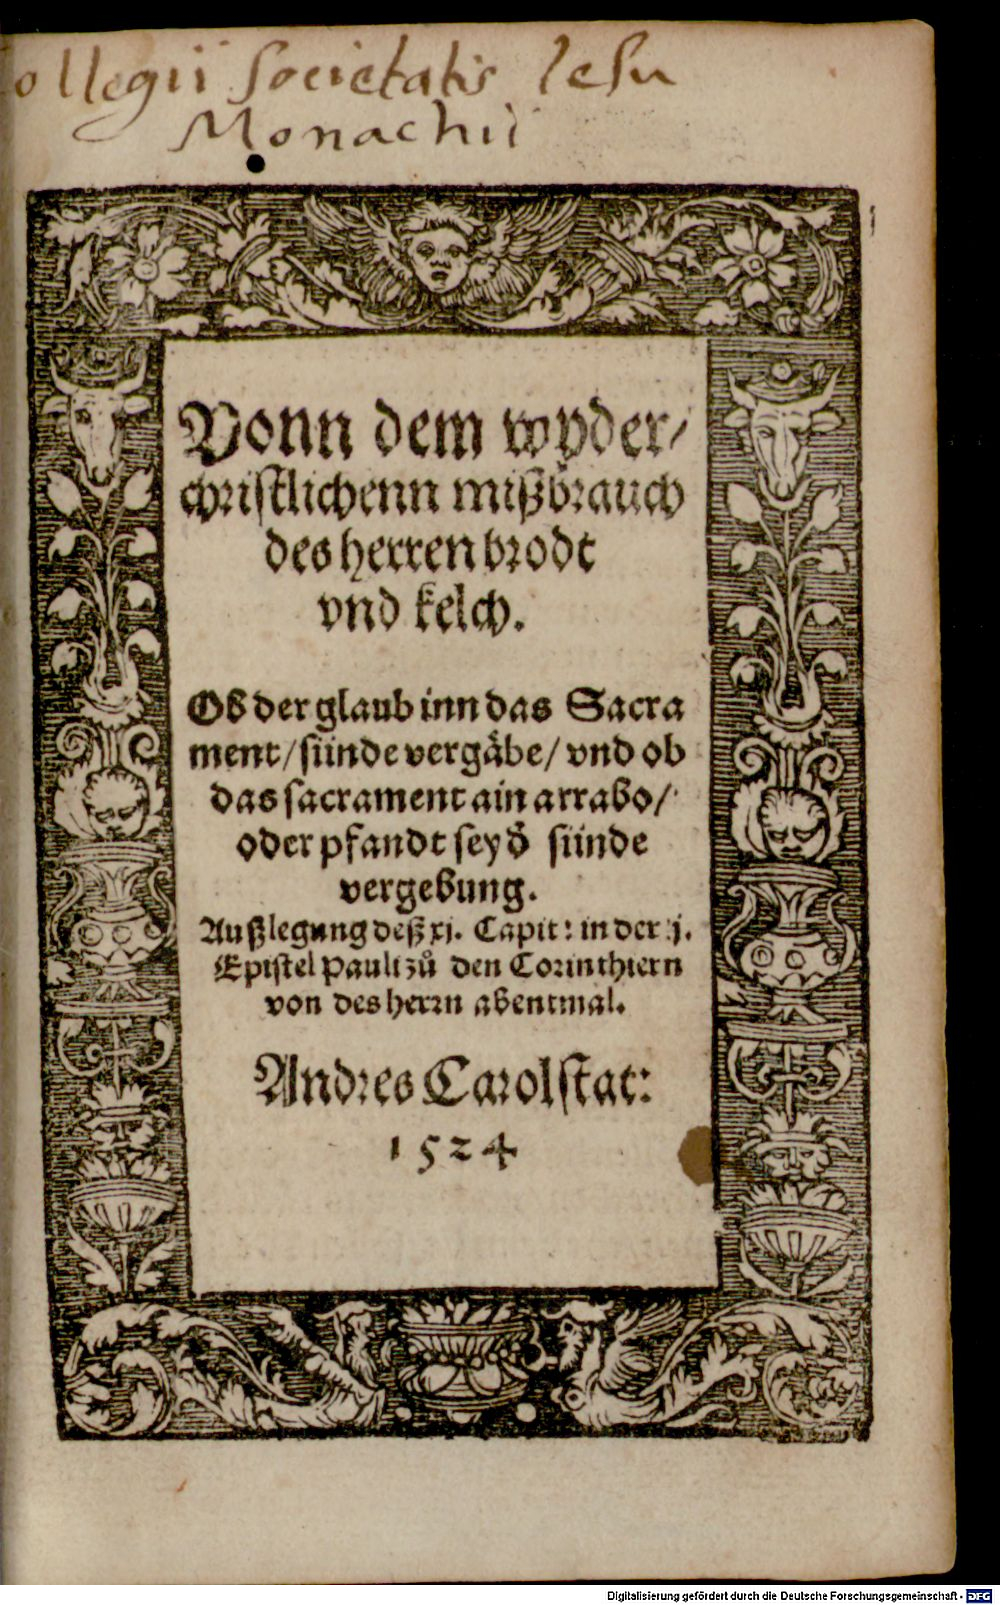 ollegii Societatis Iesu
Monachii
Vonn dem wyder/
christlichenn mißbrauch
des herren brodt
vnd kelch.
Ob der glaub inn das Sacra
ment/ sünde vergäbe/ vnd ob
das sacrament ain arrabo/
oder pfandt sey d̄ sünde
vergebung.
Außlegung deß xj. Capit: in der j.
Epistel Pauli zů den Corinthiern
von des herrn abentmal.
Andres Carolstat:
1524
Digitalisierung gefördert durch die Deutsche Forschungsgemeinschaft - DFG